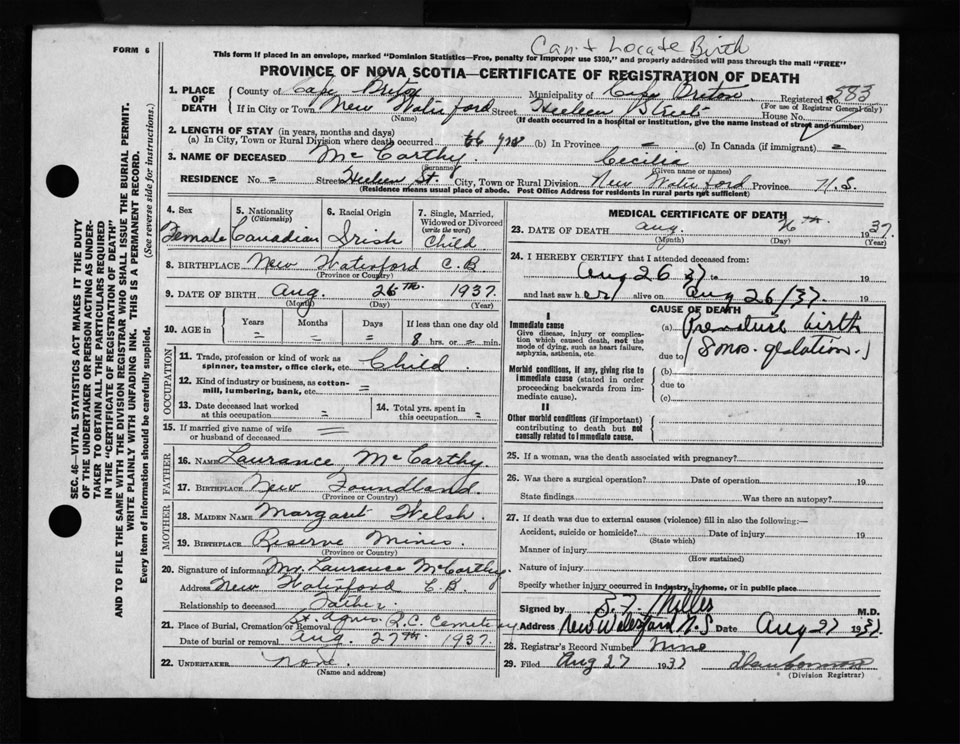 FORM 6
Can't Locate Birth
This form if placed in an envelope, marked "Dominion Statistics—Free, penalty for improper use $300," and properly addressed will pass through the mail "FREE"
PROVINCE OF NOVA SCOTIA—CERTIFICATE OF REGISTRATION OF DEATH
1. PLACE OF DEATH
County of Cape Breton Municipality of Cape Breton Registered No. 583
(For use of Registrar General only)
If in City or Town New Waterford Street Street House No.
(Name) (If death occurred in a hospital or institution, give the name instead of street and number)
2. LENGTH OF STAY (in years, months and days)
(a) In City, Town or Rural Division where death occurred yrs (b) In Province = (c) In Canada (if immigrant) =
3. NAME OF DECEASED McCarthy Cecilia
(Surname) (Given name or names)
RESIDENCE No. = Street St. City, Town or Rural Division New Waterford Province N.S.
(Residence means usual place of abode. Post Office Address for residents in rural parts not sufficient)
4. Sex
Female
5. Nationality (Citizenship)
Canadian
6. Racial Origin
Irish
7. Single, Married, Widowed or Divorced (write the word)
Child
8. BIRTHPLACE New Waterford C.B
(Province or Country)
9. DATE OF BIRTH Aug. 26th 1937
(Month) (Day) (Year)
10. AGE in Years Months Days If less than one day old
= = = 8 hrs. or = min.
OCCUPATION
11. Trade, profession or kind of work as spinner, teamster, office clerk, etc. Child
12. Kind of industry or business, as cotton-mill, lumbering, bank, etc. =
13. Date deceased last worked at this occupation =
14. Total yrs. spent in this occupation =
15. If married give name of wife or husband of deceased =
FATHER
16. NAME Laurance McCarthy
17. BIRTHPLACE New Foundland
(Province or Country)
MOTHER
18. MAIDEN NAME Margaret Welsh
19. BIRTHPLACE Reserve Mines
(Province or Country)
20. Signature of informant Mr. Laurance McCarthy.
Address New Waterford C.B.
Relationship to deceased Father.
21. Place of Burial, Cremation or Removal St. Agnes R.C. Cemetery
Date of burial or removal Aug. 27th 1937.
22. UNDERTAKER None.
(Name and address)
MEDICAL CERTIFICATE OF DEATH
23. DATE OF DEATH Aug. 26th 1937.
(Month) (Day) (Year)
24. I HEREBY CERTIFY that I attended deceased from:
Aug 26 37 to 19
and last saw her alive on Aug 26/37. 19
CAUSE OF DEATH
I
Immediate cause
Give disease, injury or complication which caused death, not the mode of dying, such as heart failure, asphyxia, asthenia, etc.
(a) Premature birth
due to (8 mos. gestation.)
Morbid conditions, if any, giving rise to immediate cause (stated in order proceeding backwards from immediate cause).
(b)
due to
(c)
II
Other morbid conditions (if important) contributing to death but not causally related to immediate cause.
25. If a woman, was the death associated with pregnancy?
26. Was there a surgical operation? Date of operation 19
State findings Was there an autopsy?
27. If death was due to external causes (violence) fill in also the following:—
Accident, suicide or homicide? Date of injury 19
(State which)
Manner of injury
(How sustained)
Nature of injury
Specify whether injury occurred in industry, in home, or in public place
Signed by Miller M.D.
Address New Waterford N.S Date Aug 27 1937.
28. Registrar's Record Number nine
29. Filed Aug 27 1937
(Division Registrar)
SEC. 46—VITAL STATISTICS ACT MAKES IT THE DUTY
OF THE UNDERTAKER OR PERSON ACTING AS UNDER-
TAKER TO OBTAIN ALL THE PARTICULARS REQUIRED
IN THE "CERTIFICATE OF REGISTRATION OF DEATH"
AND TO FILE THE SAME WITH THE DIVISION REGISTRAR WHO SHALL ISSUE THE BURIAL PERMIT.
WRITE PLAINLY WITH UNFADING INK. THIS IS A PERMANENT RECORD.
Every item of information should be carefully supplied. (See reverse side for instructions.)